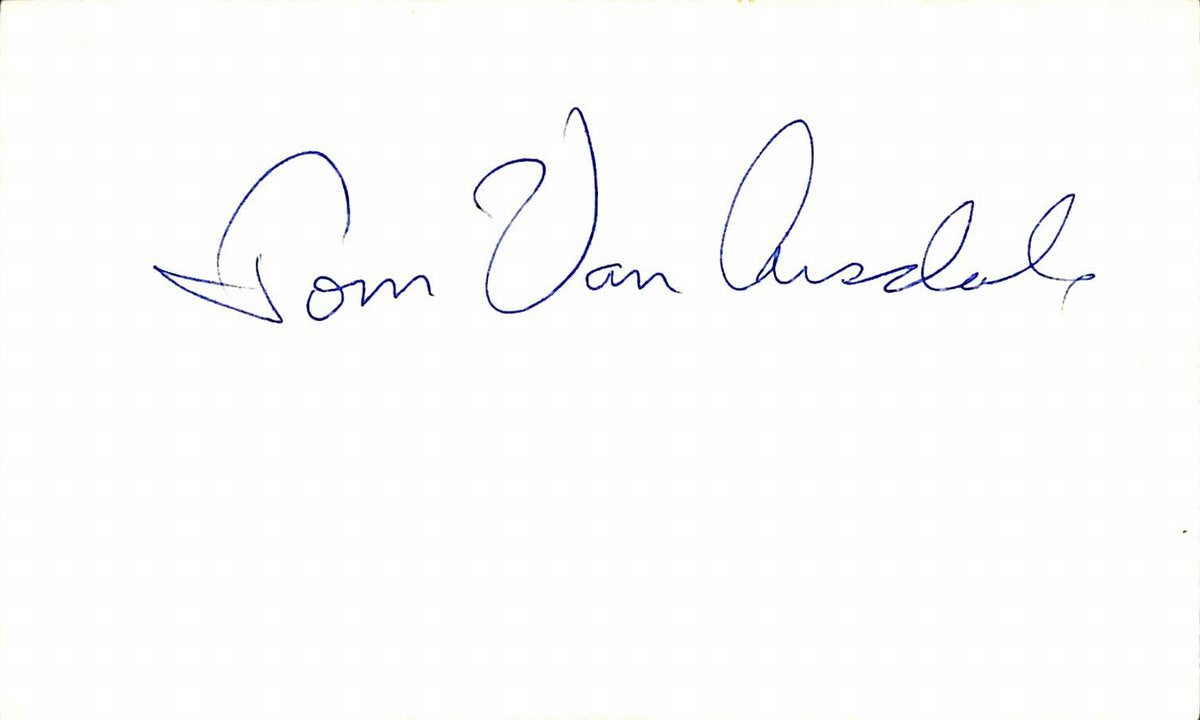 Tom Van Arsdale